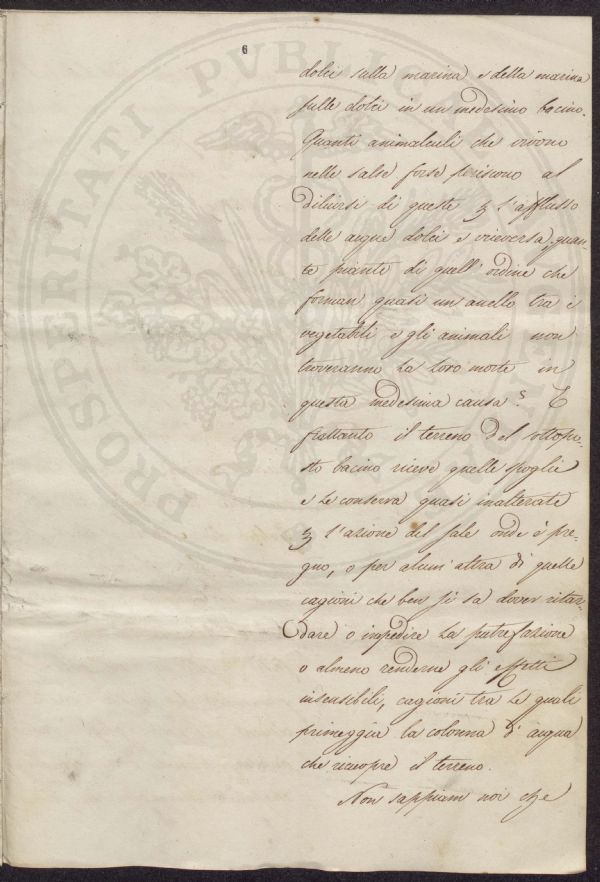 6
PROSPERITATI PVBLIC
dolci sulla marina e della marina
sulle dolci in un medesimo bacino.
Quanti animalculi che vivono
nelle salse forse periscono al
diluirsi di queste ꝫ l'afflusso
delle acque dolci e viceversa, quan-
te piante di quell'ordine che
forman quasi un anello tra i
vegetabili e gli animali non
troveranno la loro morte in
questa medesima causa? E
frattanto il terreno del sottopo-
sto bacino riceve quelle spoglie
e le conserva quasi inalterate
ꝫ l'azione del sale onde è pre-
gno, o per alcun'altra di quelle
cagioni che ben si sa dover ritar-
dare o impedire la putrefazione
o almeno renderne gli effetti
insensibili, cagioni tra le quali
primeggia la colonna d'acqua
che ricuopre il terreno.
Non sappiam noi che